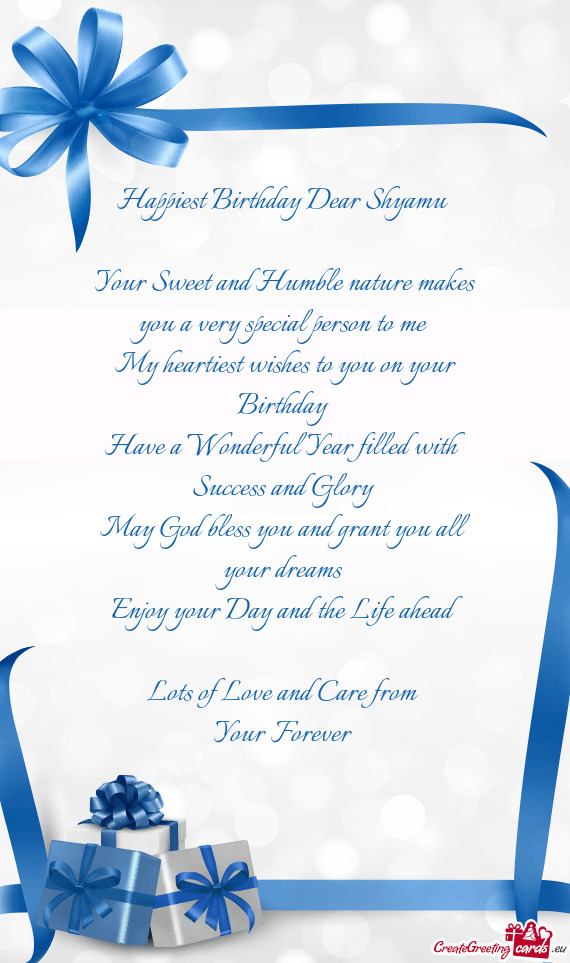 Happiest Birthday Dear Shyamu
Your Sweet and Humble nature makes
you a very special person to me
My heartiest wishes to you on your
Birthday
Have a Wonderful Year filled with
Success and Glory
May God bless you and grant you all
your dreams
Enjoy your Day and the Life ahead
Lots of Love and Care from
Your Forever
CreateGreeting cards .eu